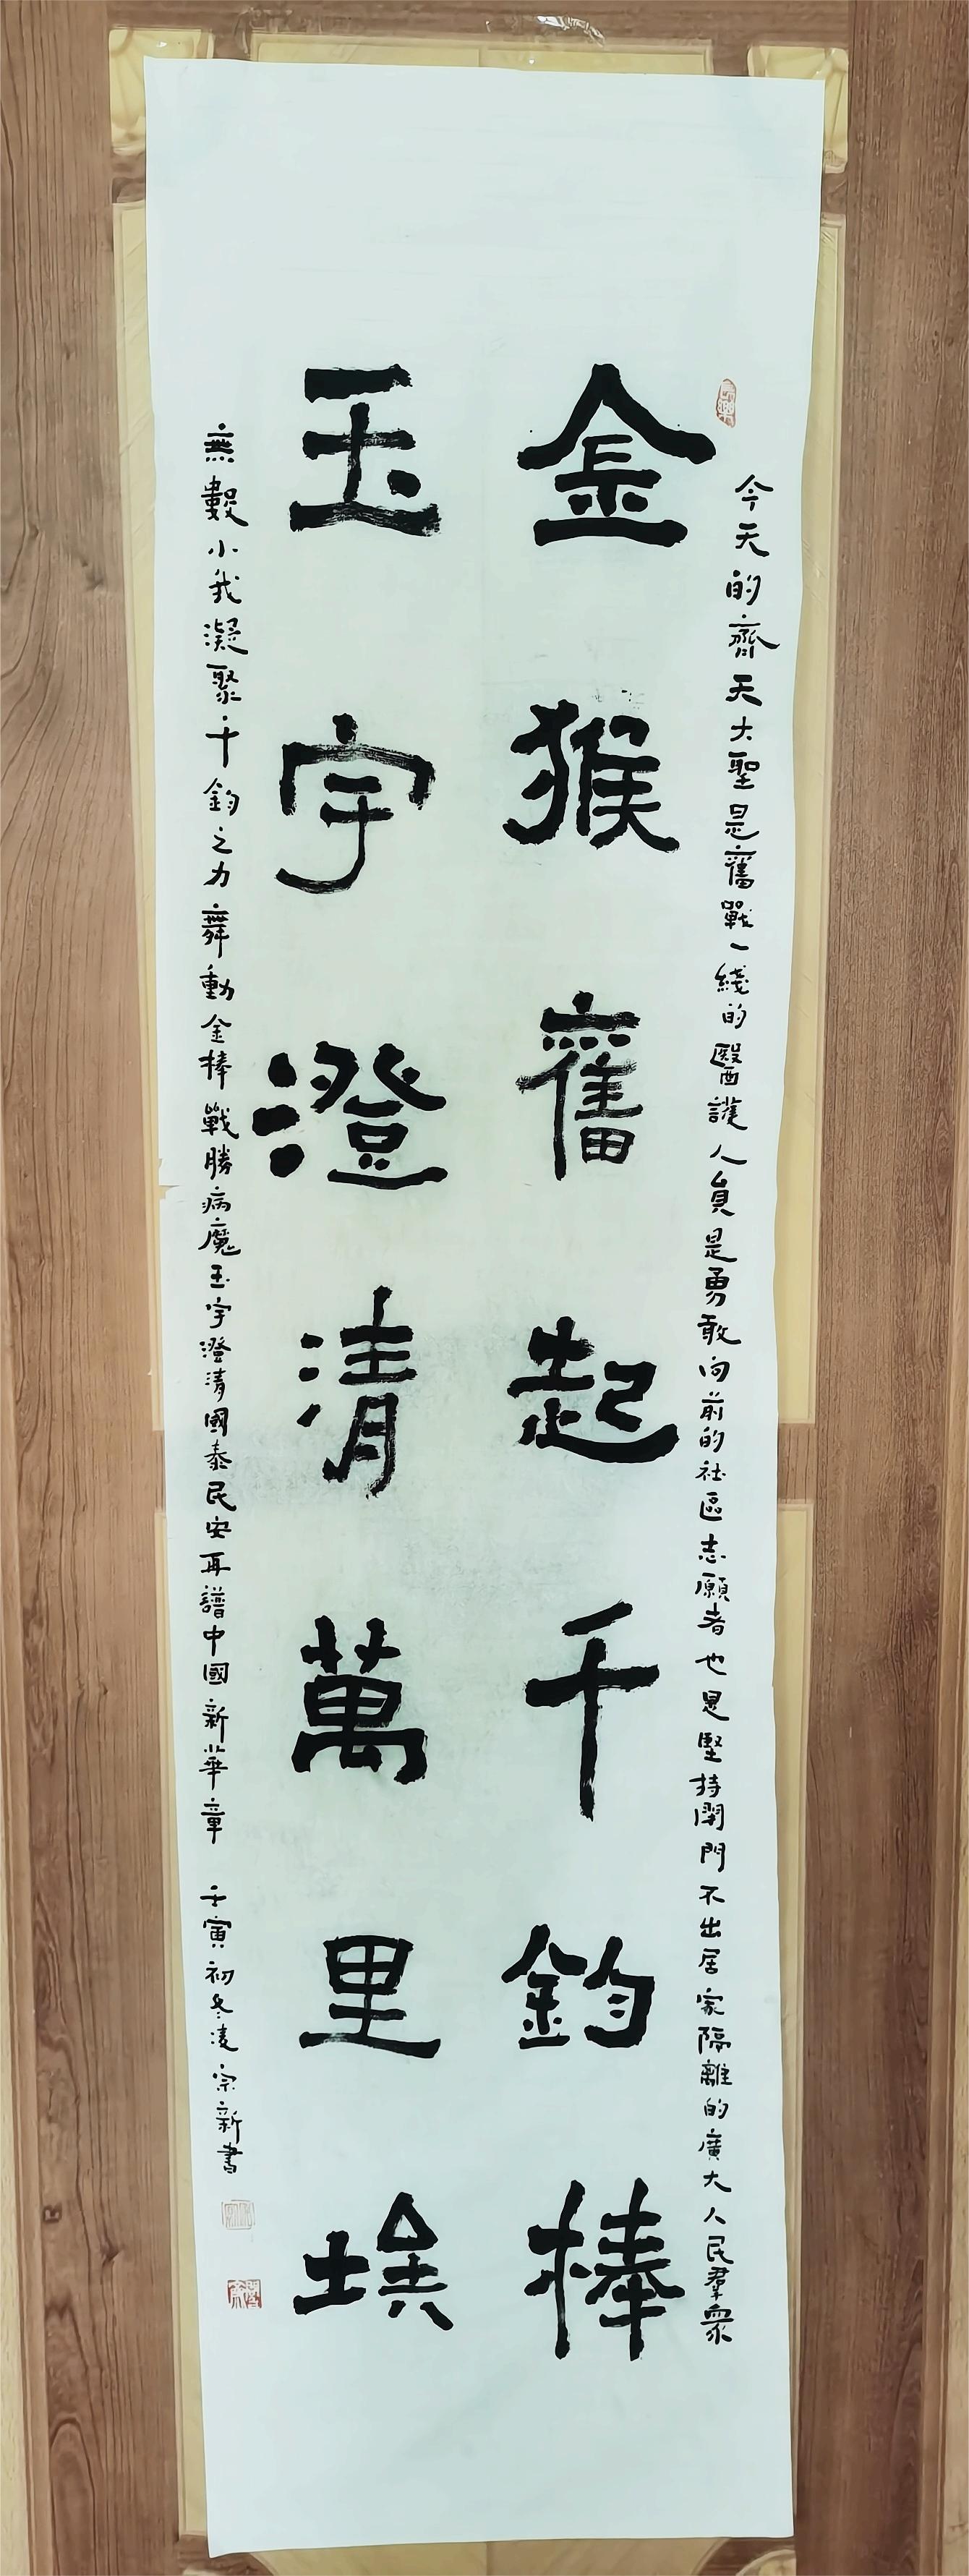 今天的齊天大聖是奮戰一綫的醫護人員是勇敢向前的社區志願者也是堅持閉門不出居家隔離的廣大人民羣衆
金猴奮起千鈞棒
玉宇澄清萬里埃
無數小我凝聚千鈞之力舞動金棒戰勝病魔玉宇澄清國泰民安再譜中國新華章 壬寅初冬凌宗新書